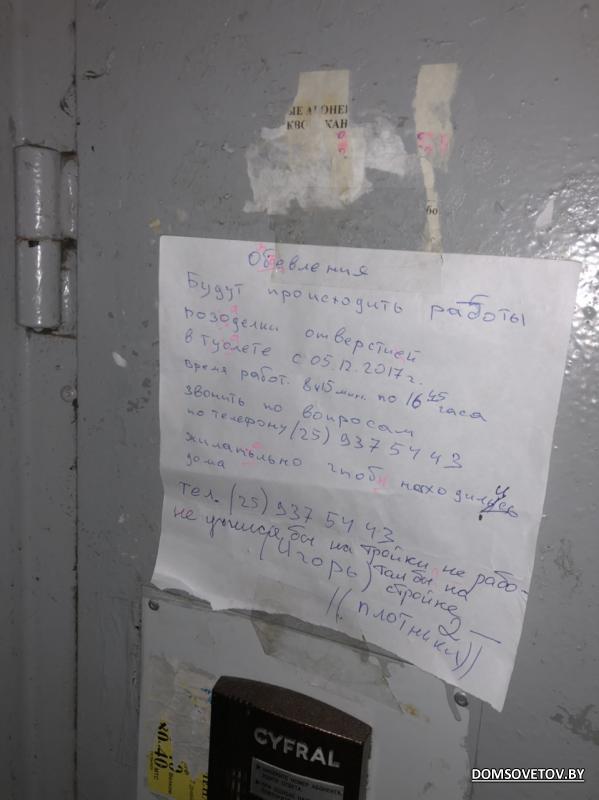 ЫЕ АБОНЕН
КВО ХАН
бо
Обевления
Будут происходить работы
позоделки отверстией
в туолете с 05.12.2017г.
время работ. 8ч15мин. по 16 45 часа
звонить по вопросам
по телефону (25) 937 54 43
жилательно чтоб находились
дома
тел. (25) 937 54 43
не учился бы на тройки не рабо-
(Игорь) тал бы на
стройке
2 —
//(плотники)//
CYFRAL
DOMSOVETOV.BY